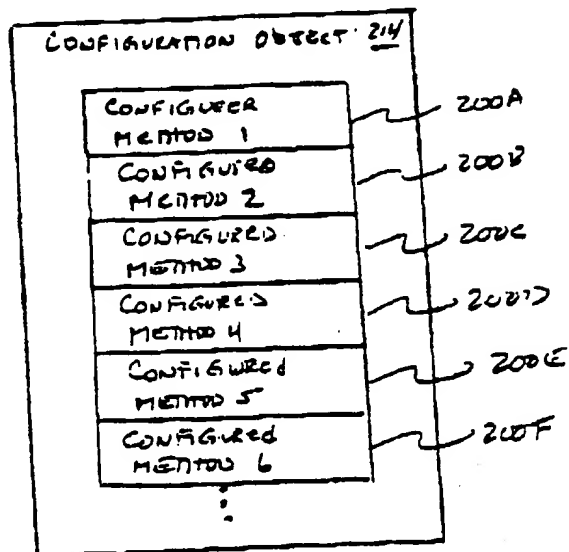 CONFIGURATION OBJECT 214
CONFIGURED
METHOD 1
200A
CONFIGURED
METHOD 2
200B
CONFIGURED
METHOD 3
200C
CONFIGURED
METHOD 4
200D
CONFIGURED
METHOD 5
200E
CONFIGURED
METHOD 6
200F